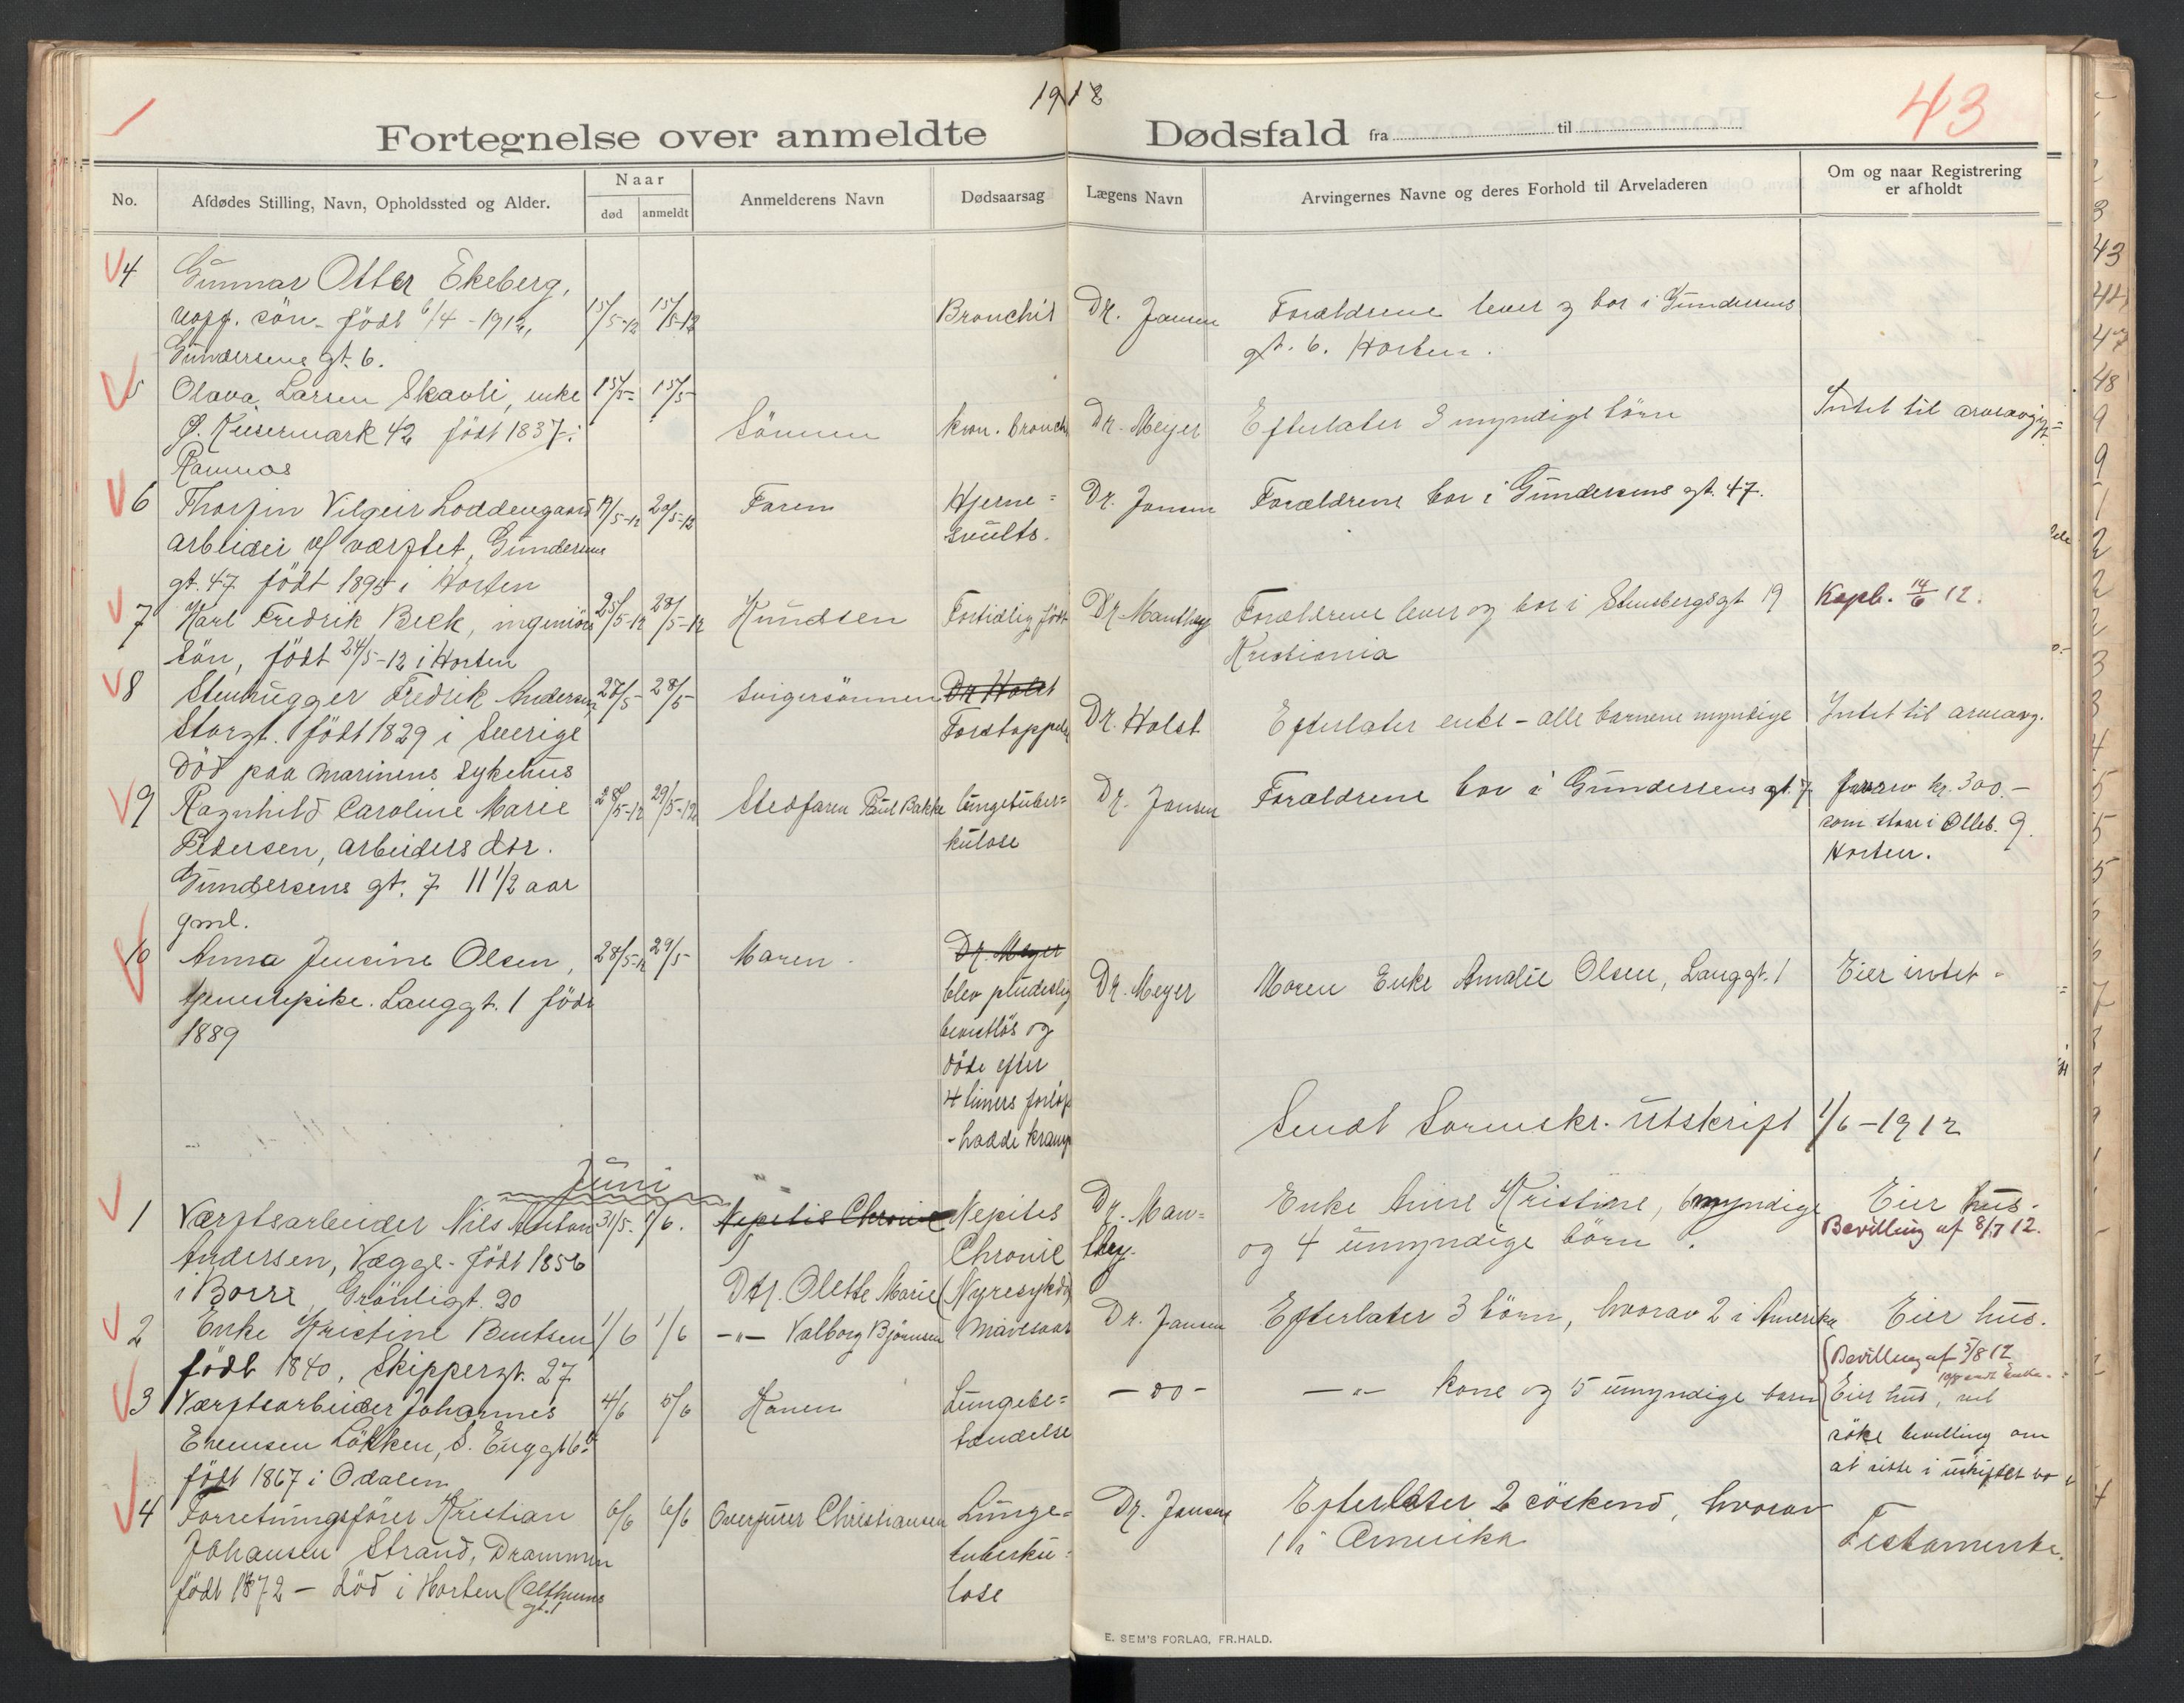 1912
43
Fortegnelse over anmeldte Dødsfald fra til
No.
Afdødes Stilling, Navn, Opholdssted og Alder.
Naar
død
anmeldt
Anmelderens Navn
Dødsaarsag
Lægens Navn
Arvingernes Navne og deres Forhold til Arveladeren
Om og naar Registrering
er afholdt
4 Gunnar Otter Ekeberg,
sön - född 6/4 - 1912, 15/5-12 15/5-12 Bronchit Dr. Jansen Forældrene lever og bor i Gundersens
Gundersens gt. 6. gt. 6. Horten.
5 Olava Larsen Skavli, enke 15/5- 15/5-
Ø. Keisermark 42 född 1837 i Sönnen kron. bronch. Dr. Meyer Efterlater 3 myndige börn Intet til arveavgift
Ramnes
6 Thorfin Vilgeir Loddengaard 19/5-12 20/5-12 Faren Hjerne= Dr. Jansen Forældrene bor i Gundersens gt. 47.
arbeider v/ værftet, Gundersens svulst.
gt. 47 född 1895 i Horten
7 Karl Fredrik Beck, ingeniörs 25/5-12 28/5-12 Knudsen Fortidlig född Dr. Manthey Forældrene lever og bor i Stensbergsgt 19 Kapb. 14/6 12.
Sön, född 24/5-12 i Horten Kristiania
8 Stenhugger Fredrik Andersen, 27/5- 28/5- Svigersönnen Dr Holst
Storgt. född 1829 i Sverige Forstoppelse Dr. Holst Efterlater enke - alle barnene myndige Intet til arveavg.
död paa marinens sykehus
9 Ragnhild Caroline Marie 28/5-12 29/5-12 Stedfaren Paul Bakke lungetuber= Dr. Jansen Forældrene bor i Gundersens gt. 7. kr. 300.-
Pedersen, arbeiders dtr. kulose som staar i Olleb. 9.
Gundersens gt. 7 11 1/2 aar Horten.
gml.
10 Anna Jensine Olsen, 28/5-12 29/5- Moren. Dr. Meyer
tjenestepike. Langgt. 1 född blev pludselig Dr. Meyer Moren Enke Amalie Olsen, Langgt. 1 Eier intet -
1889 bevistlös og
döde efter
4 timers forlöp
- hadde kramp
Sendt Sorenskr. utskrift 1/6 - 1912
Juni
1 Værftsarbeider Nils Anton 31/5. 1/6. Nepitis Chronic Nepites Dr. Man= Enke Anne Kristine, 6 myndige Eier hus.
Andersen, Vægge - född 1856 Chronic they. og 4 umyndige börn. Bevilling af 8/7 12.
i Borre, Grönligt. 20 Dtr. Olette Marie (Nyresykd.)
2 Enke Kristine Bentsen 1/6 1/6 -"- Valborg Björnsen Mavesaar Dr. Jansen Efterlater 3 börn, hvorav 2 i Amerika Eier hus.
född 1840, Skippergt. 27 Bevilling af 5/8 12
3 Værftsarbeider Johannes 4/6 5/6 Konen Lungebe= - do - -"- kone og 5 umyndige barn Eier hus, vil
Evensen Lökken, S. Enggt 6b tændelse söke bevilling om
född 1867 i Odalen at sitte i uskiftet bo
4 Forretningsförer Kristian 6/6 6/6 Overfurer Christiansen Lunge= Dr. Jansen Efterlater 2 söskend, hvorav
Johansen Strand, Drammen tuberku= 1 i Amerika Testamente.
född 1872 - död i Horten ( lose
gt. 1
E. SEM'S FORLAG, FR.HALD.